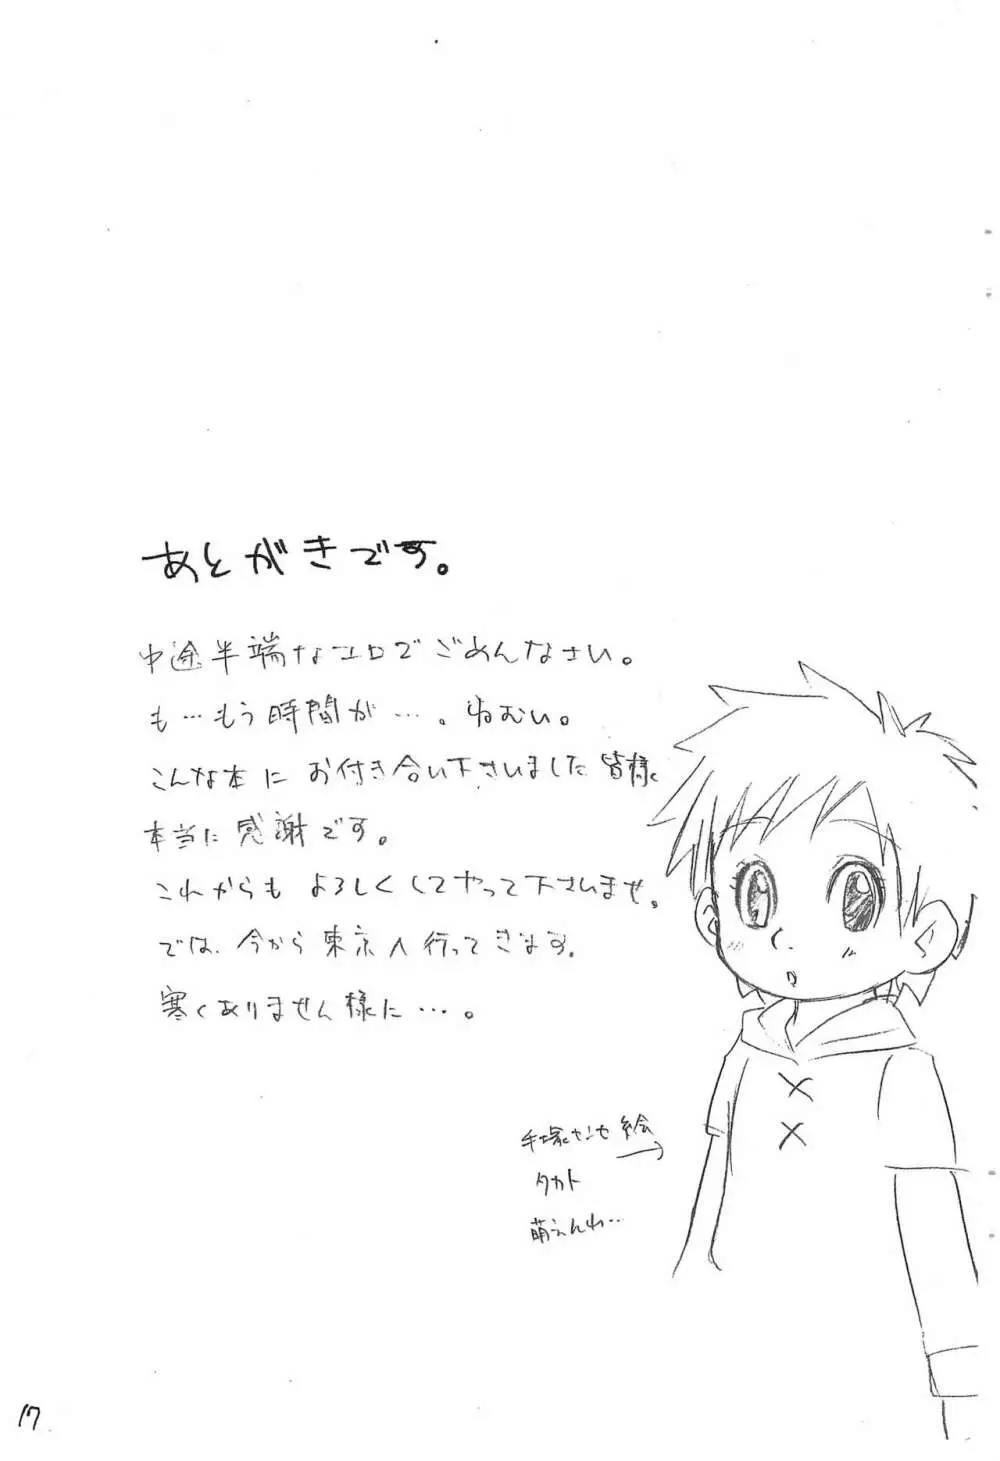 あとがきです。
中途半端なエロでごめんなさい。
も…もう時間が…。ねむい。
こんな本にお付き合い下さいました皆様
本当に感謝です。
これからもよろしくしてやって下さいませ。
では、今から東京へ行ってきます。
寒くありません様に…。
手塚センセ絵→
タカト
萌えんわ…
17